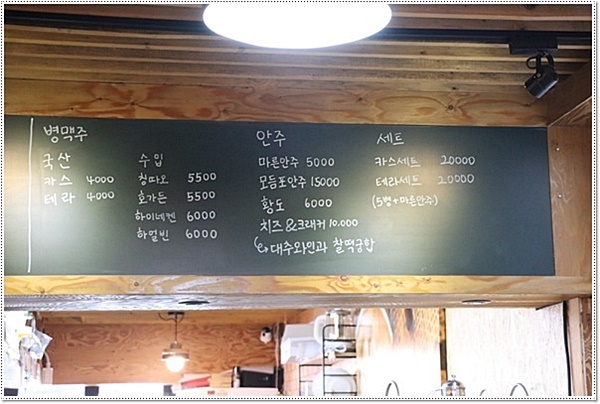 병맥주
국산
카스 4000
테라 4000
수입
칭따오 5500
호가든 5500
하이네켄 6000
하얼빈 6000
안주
마른안주 5000
모듬포안주 15000
황도 6000
치즈&크래커 10.000
↳ 대추와인과 찰떡궁합
세트
카스세트 20000
테라세트 20000
(5병+마른안주)